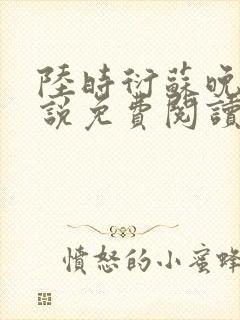 陸時衍蘇晚
說免費閱讀
憤怒的小蜜蜂